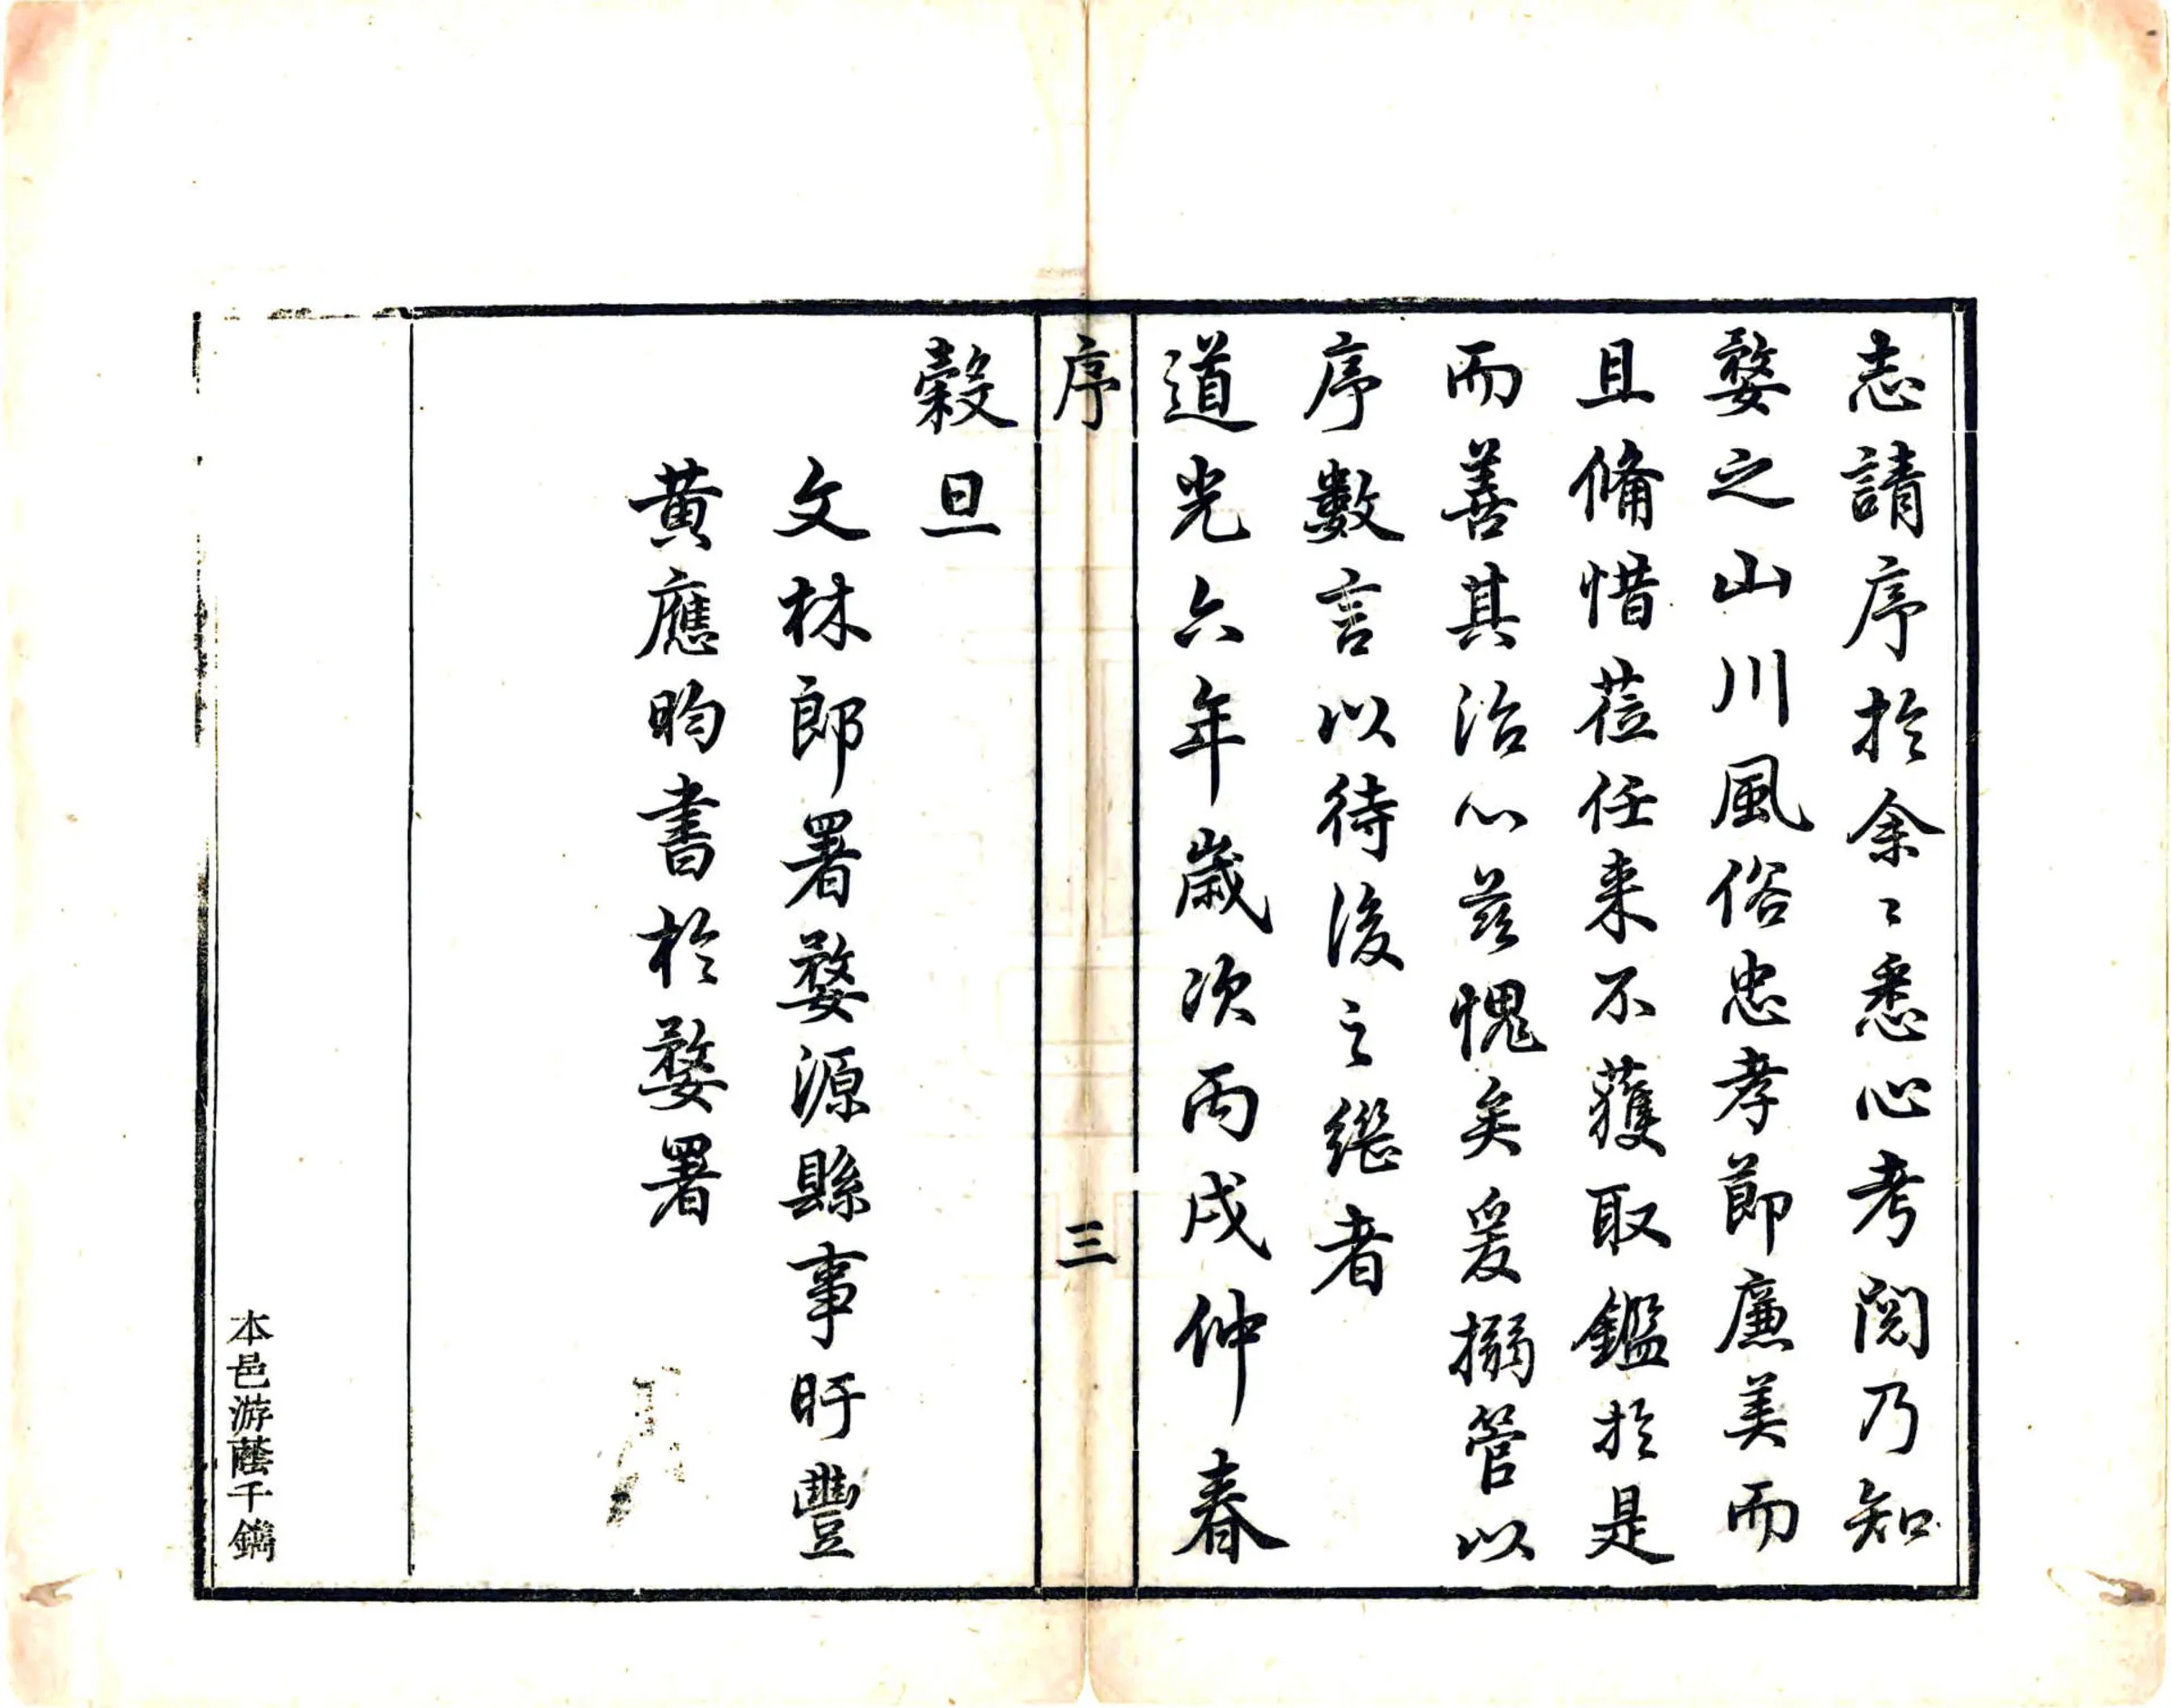 志請序於余〻悉心考閱乃知
婺之山川風俗忠孝節廉美而
且俻惜莅任来不獲取鑑於是
而善其治心茲愧矣爰搦管以
序數言以待後之繼者
道光六年歲次丙戌仲春
序 三
穀旦
文林郎署婺源縣事盱豐
黄應昀書於婺署
本邑游蔭千鐫